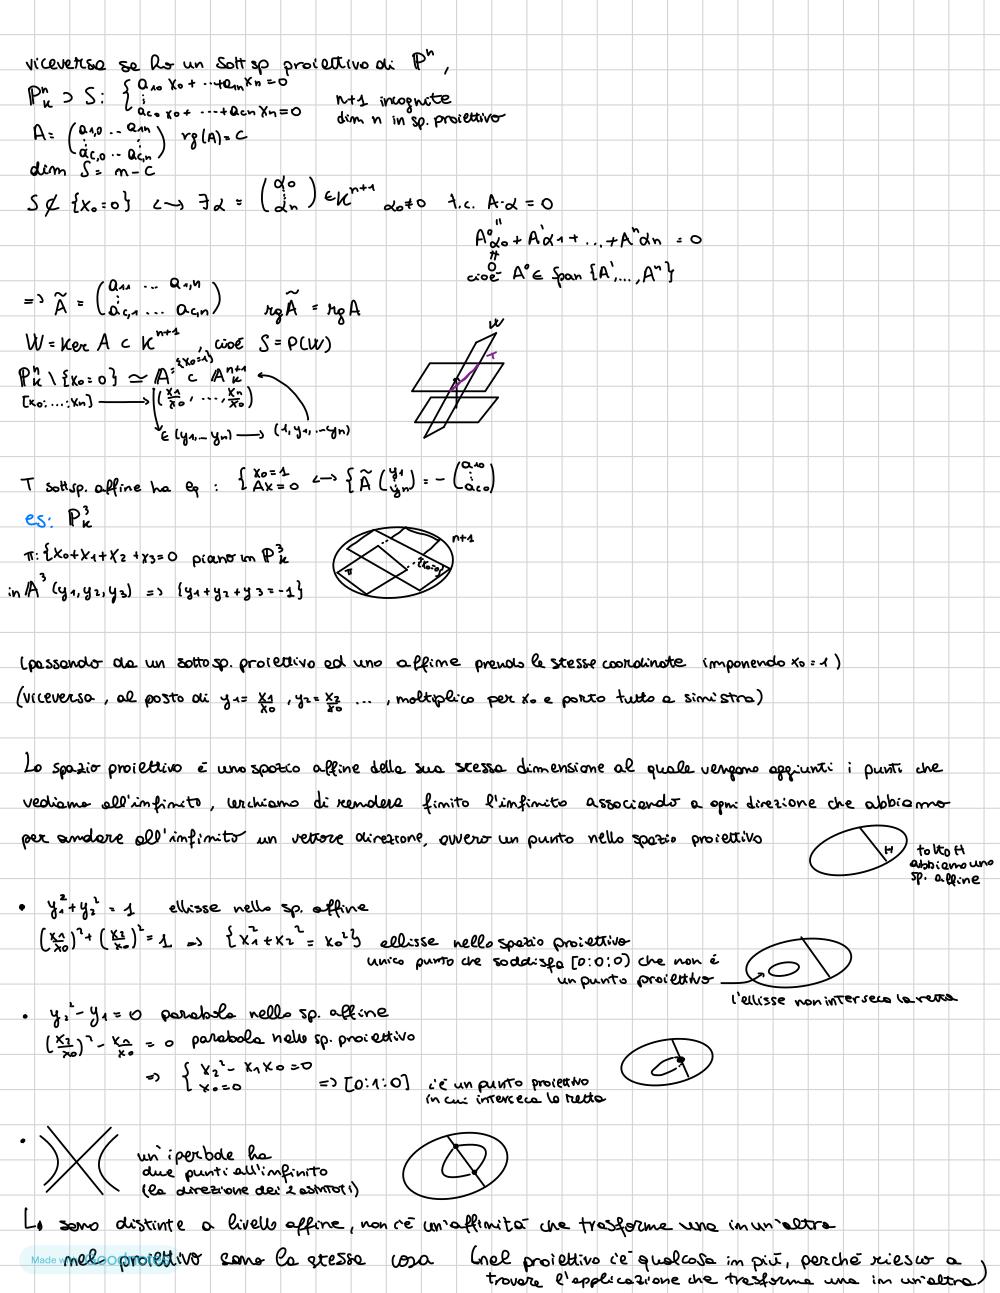 viceversa se ho un sottsp proiettivo di ℙⁿ,
ℙⁿₖ ⊃ S: { a₁₀ x₀ + ··· + a₁ₙ xₙ = 0
⋮
a_c₀ x₀ + ··· + a_cn xₙ = 0
n+1 incognite
dim n in sp. proiettivo
A = ( a₁,₀ .. a₁ₙ
⋮
a_c,₀ .. a_c,n ) rg(A) = c
dim S = n - c
S ⊄ {x₀=0} <-> ∃ α = ( α₀ ⋮ αₙ ) ∈ Kⁿ⁺¹ α₀≠0 t.c. A·α = 0
"
A⁰α₀ + A¹α₁ + ... + Aⁿαₙ = 0
≠
0
cioè A⁰ ∈ Span {A¹,..., Aⁿ}
=> Ã = ( a₁₁ ... a₁,ₙ
⋮
a_c,₁ ... a_c,n ) rg Ã = rg A
W = Ker A ⊂ Kⁿ⁺¹, cioè S = P(W)
W
T
ℙⁿₖ \ {x₀=0} ≃ 𝔸ⁿ={x₀=1} ⊂ 𝔸ⁿ⁺¹ₖ
[x₀:...:xₙ] ⟶ (x₁/x₀, ..., xₙ/x₀)
∈ (y₁,... yₙ) ⟶ (1, y₁, ... yₙ)
T sottsp. affine ha eq : { x₀=1
Ax=0 <-> { Ã ( y₁ ⋮ yₙ ) = - ( a₁₀ ⋮ a_c₀ )
es: ℙ³ₖ
n+1
π: {x₀+x₁+x₂+x₃=0 piano in ℙ³ₖ
π
{x₀=0}
in 𝔸³ (y₁,y₂,y₃) => {y₁+y₂+y₃=-1}
(passando da un sottosp. proiettivo ad uno affine prendo le stesse coordinate imponendo x₀=1)
(viceversa, al posto di y₁= x₁/x₀, y₂= x₂/x₀ ..., moltiplico per x₀ e porto tutto a sinistra)
Lo spazio proiettivo è uno spazio affine della sua stessa dimensione al quale vengono aggiunti i punti che
vediamo all'infinito, cerchiamo di rendere finito l'infinito associando a ogni direzione che abbiamo
per andare all'infinito un vettore direzione, ovvero un punto nello spazio proiettivo
H
tolto H
abbiamo uno
sp. affine
• y₁²+y₂² = 1 ellisse nello sp. affine
(x₁/x₀)²+(x₂/x₀)²=1 => {x₁²+x₂²=x₀²} ellisse nello spazio proiettivo
unico punto che soddisfa [0:0:0] che non è
un punto proiettivo
l'ellisse non interseca la retta
• y₂²-y₁=0 parabola nello sp. affine
(x₂/x₀)² - x₁/x₀ = 0 parabola nello sp. proiettivo
=> { x₂²-x₁x₀=0
x₀=0 => [0:1:0] c'è un punto proiettivo
in cui interseca la retta
• un'iperbole ha
due punti all'infinito
(la direzione dei 2 asintoti)
↳ sono distinte a livello affine, non c'è un'affinità che trasforma una in un'altra
nello proiettivo sono la stessa cosa (nel proiettivo c'è qualcosa in più, perché riesco a
trovare l'applicazione che trasforma una in un'altra)
Made with Goodnotes